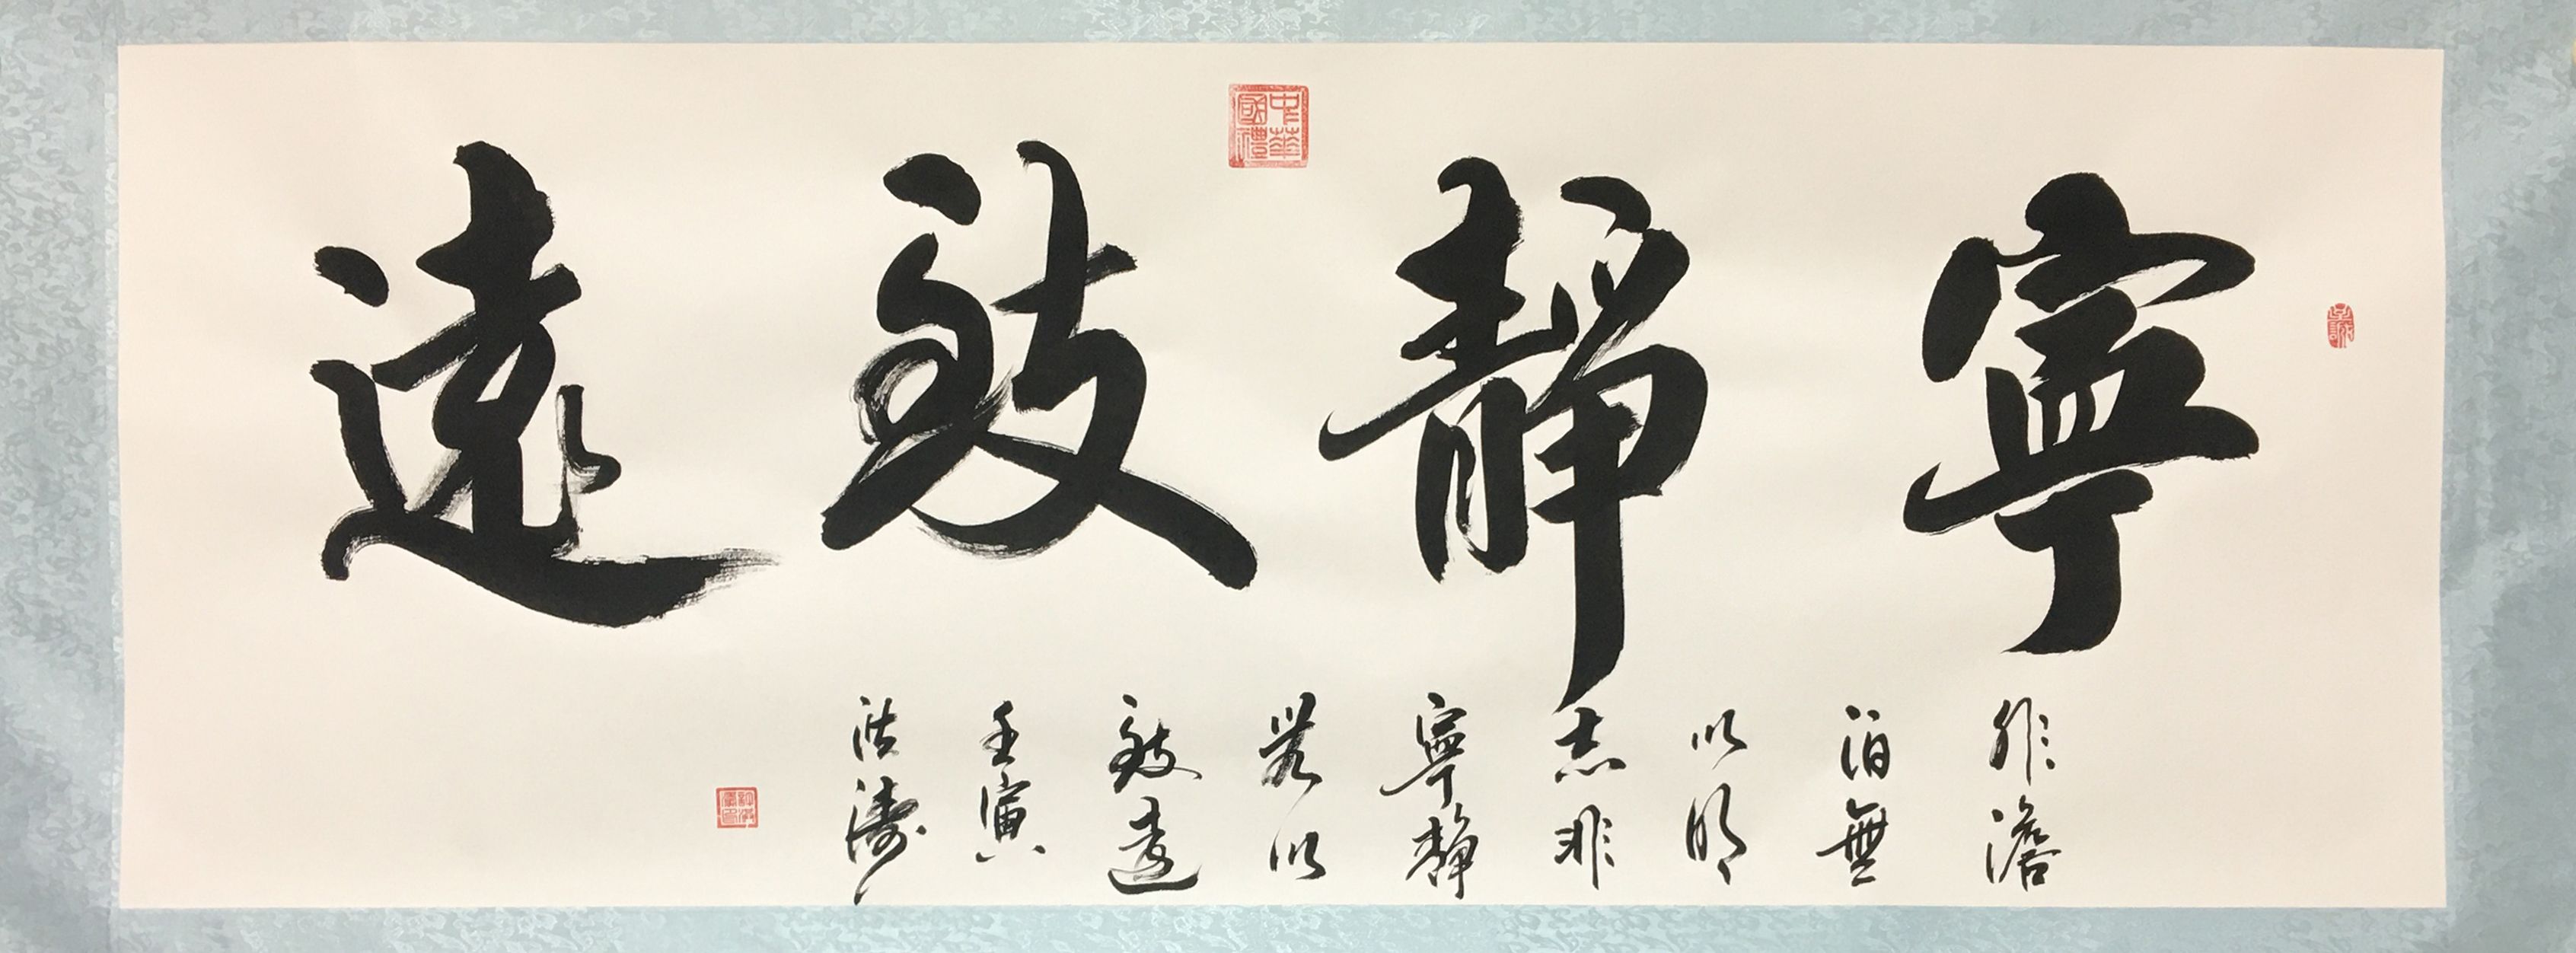 寧靜致遠
非澹
泊無
以明
志非
寧靜
無以
致遠
壬寅
洪濤
中華國禮